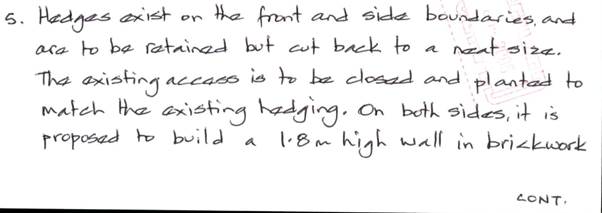 5. Hedges exist on the front and side boundaries, and
are to be retained but cut back to a neat size.
The existing access is to be closed and planted to
match the existing hedging. On both sides, it is
proposed to build a 1.8m high wall in brickwork
CONT.